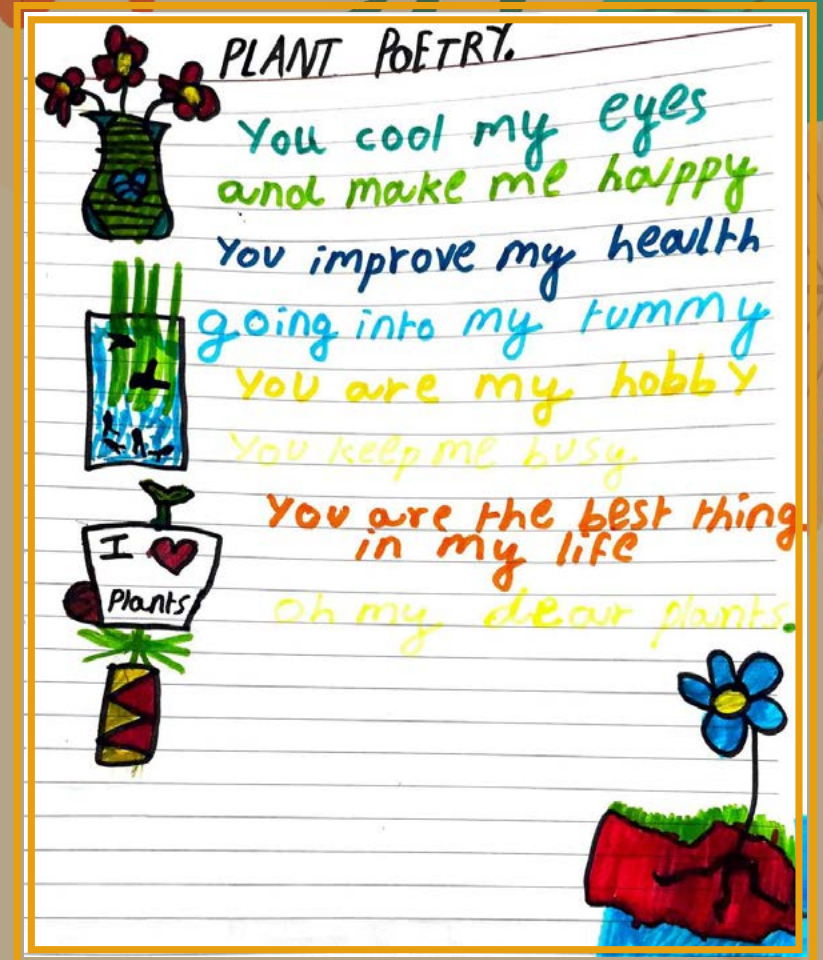 PLANT POETRY.
You cool my eyes
and make me happy
You improve my health
going into my tummy
You are my hobby
You keep me busy
You are the best thing
in my life
oh my dear plants.
I
Plants